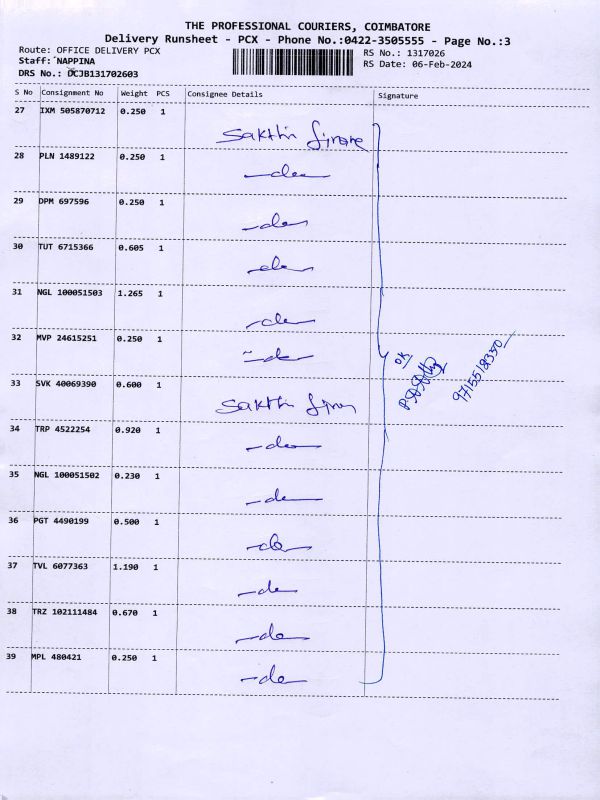 THE PROFESSIONAL COURIERS, COIMBATORE
Delivery Runsheet - PCX - Phone No.:0422-3505555 - Page No.:3
Route: OFFICE DELIVERY PCX
RS No.: 1317026
Staff: NAPPINA
RS Date: 06-Feb-2024
DRS No.: DCJB131702603
S No Consignment No Weight PCS Consignee Details Signature
27 IXM 505870712 0.250 1
Sakthi finance
28 PLN 1489122 0.250 1
-do-
29 DPM 697596 0.250 1
-do-
30 TUT 6715366 0.605 1
-do-
31 NGL 100051503 1.265 1
-do-
32 MVP 24615251 0.250 1
-do-
OK
9715518350
33 SVK 40069390 0.600 1
Sakthi finan
34 TRP 4522254 0.920 1
-do-
35 NGL 100051502 0.230 1
-do-
36 PGT 4490199 0.500 1
-do-
37 TVL 6077363 1.190 1
-do-
38 TRZ 102111484 0.670 1
-do-
39 MPL 480421 0.250 1
-do-